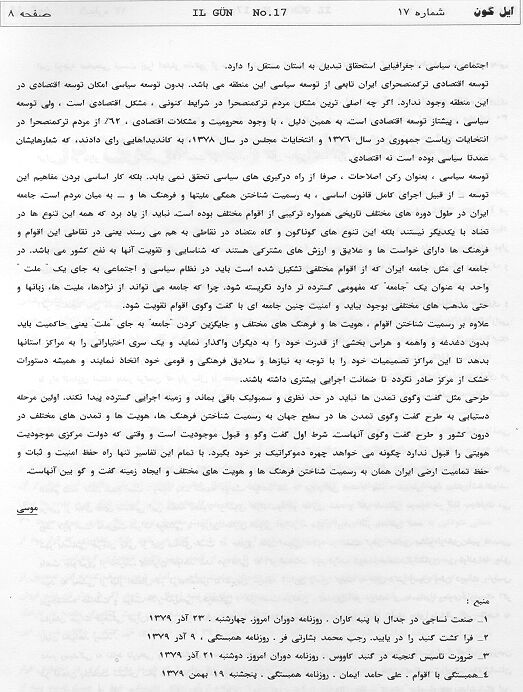 ایل گون شماره ۱۷ IL GÜN No.17 صفحه ۸
اجتماعی، سیاسی ، جغرافیایی استحقاق تبدیل به استان مستقل را دارد.
توسعه اقتصادی ترکمنصحرای ایران تابعی از توسعه سیاسی این منطقه می باشد. بدون توسعه سیاسی امکان توسعه اقتصادی در
این منطقه وجود ندارد. اگر چه اصلی ترین مشکل مردم ترکمنصحرا در شرایط کنونی ، مشکل اقتصادی است ، ولی توسعه
سیاسی ، پیشتاز توسعه اقتصادی است. به همین دلیل ، با وجود محرومیت و مشکلات اقتصادی ، ۶۲٪ از مردم ترکمنصحرا در
انتخابات ریاست جمهوری در سال ۱۳۷۶ و انتخابات مجلس در سال ۱۳۷۸، به کاندیداهایی رای دادند، که شعارهایشان
عمدتا سیاسی بوده است نه اقتصادی.
توسعه سیاسی ، بعنوان رکن اصلاحات ، صرفا از راه درگیری های سیاسی تحقق نمی یابد. بلکه کار اساسی بردن مفاهیم این
توسعه _ از قبیل اجرای کامل قانون اساسی ، به رسمیت شناختن همگی ملیتها و فرهنگ ها و ... به میان مردم است. جامعه
ایران در طول دوره های مختلف تاریخی همواره ترکیبی از اقوام مختلف بوده است. نباید از یاد برد که همه این تنوع ها در
تضاد با یکدیگر نیستند بلکه این تنوع های گوناگون و گاه متضاد در نقاطی به هم می رسند یعنی در نقاطی این اقوام و
فرهنگ ها دارای خواست ها و علایق و ارزش های مشترکی هستند که شناسایی و تقویت آنها به نفع کشور می باشد. در
جامعه ای مثل جامعه ایران که از اقوام مختلفی تشکیل شده است باید در نظام سیاسی و اجتماعی به جای یک " ملت "
واحد به عنوان یک "جامعه" که مفهومی گسترده تر دارد نگریسته شود. چرا که جامعه می تواند از نژادها، ملیت ها، زبانها و
حتی مذهب های مختلفی بوجود بیاید و امنیت چنین جامعه ای با گفت وگوی اقوام تقویت شود.
علاوه بر رسمیت شناختن اقوام ، هویت ها و فرهنگ های مختلف و جایگزین کردن "جامعه" به جای "ملت" یعنی حاکمیت باید
بدون دغدغه و واهمه و هراس بخشی از قدرت خود را به دیگران واگذار نماید و یک سری اختیاراتی را به مراکز استانها
بدهد تا این مراکز تصمیمیات خود را با توجه به نیازها و سلایق فرهنگی و قومی خود اتخاذ نمایند و همیشه دستورات
خشک از مرکز صادر نگردد تا ضمانت اجرایی بیشتری داشته باشند.
طرحی مثل گفت وگوی تمدن ها نباید در حد نظری و سمبولیک باقی بماند و زمینه اجرایی گسترده پیدا نکند. اولین مرحله
دستیابی به طرح گفت وگوی تمدن ها در سطح جهان به رسمیت شناختن فرهنگ ها، هویت ها و تمدن های مختلف در
درون کشور و طرح گفت وگوی آنهاست. شرط اول گفت وگو و قبول موجودیت است و وقتی که دولت مرکزی موجودیت
هویتی را قبول ندارد چگونه می خواهد چهره دموکراتیک بر خود بگیرد. با تمام این تفاسیر تنها راه حفظ امنیت و ثبات و
حفظ تمامیت ارضی ایران همان به رسمیت شناختن فرهنگ ها و هویت های مختلف و ایجاد زمینه گفت و گو بین آنهاست.
موسی
منبع :
۱_ صنعت نساجی در جدال با پنبه کاران . روزنامه دوران امروز. چهارشنبه . ۲۳ آذر ۱۳۷۹
۲_ فرا کشت کنید را در یابید. رجب محمد بشارتی فر . روزنامه همبستگی . ۹ آذر ۱۳۷۹
۳_ ضرورت تاسیس گنجینه در گنبد کاووس . روزنامه دوران امروز. دوشنبه ۲۱ آذر ۱۳۷۹
۴_همبستگی با اقوام . علی حامد ایمان . روزنامه همبستگی . پنجشنبه ۱۹ بهمن ۱۳۷۹